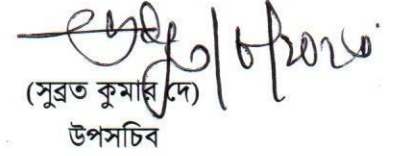 (সুব্রত কুমার দে)
উপসচিব